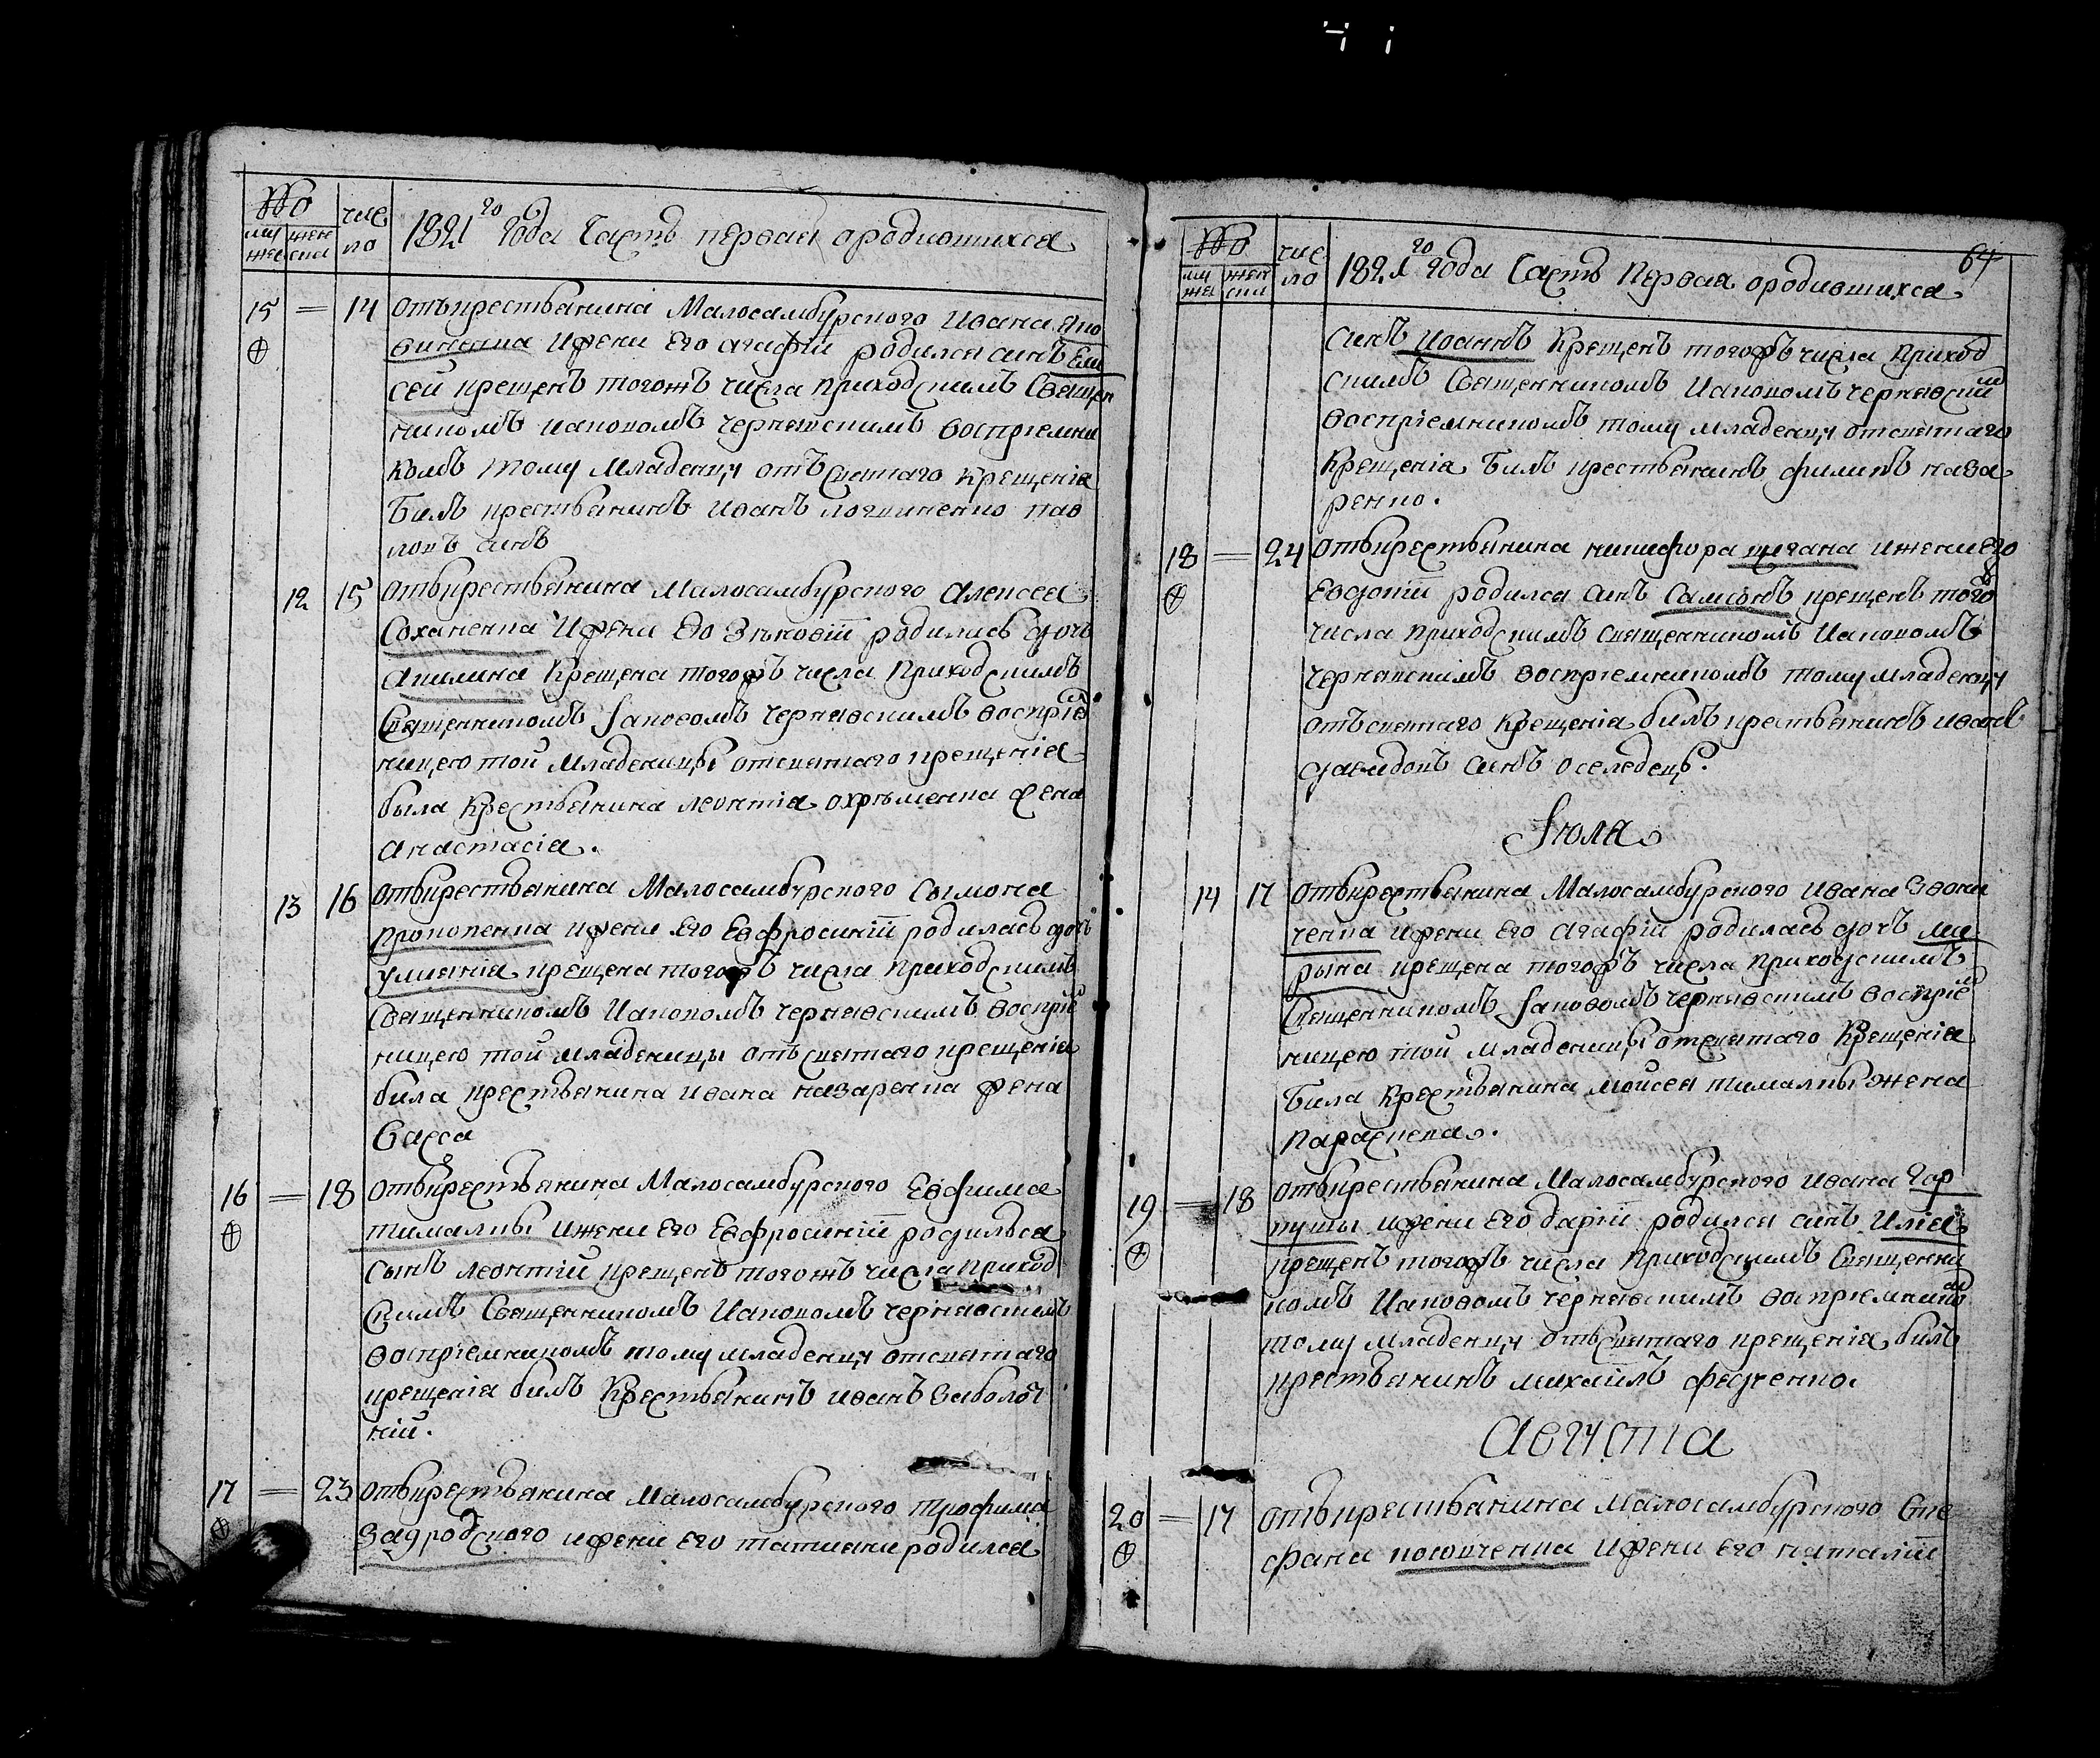 №
му
жес
женс
ка
чис
ло
1821го Года Часть первая ородившихся
15 = 14 отъкрестьянина Малосамбурского Ивана Яко
виненка ижени его агафіи родился синъ Ели
сей крещенъ тогожъ числа приходскимъ Священ
никомъ Иаковомъ чернявскимъ воспріемни
комъ тому младенцу отъ Святаго Крещенія
билъ крестьянинъ иванъ логвиненко пав
ловъ синъ
12 15 отъкрестьянина Малосамбурского Алексея
Соханенка ижени его Зѣновіи родилась дочъ
Акилина Крещена тогожъ числа Приходскимъ
Священникомъ Іаковомъ чернявскимъ воспріем
ницею той младеницы отсвятаго крещенія
была Крестьянина леонтія охрѣменка жена
анастасія.
13 16 отъкрестьянина Малосамбурского Сымона
Прокопенка ижени его Евфросиніи родилась дочъ
улиянія крещена тогожъ числа приходскимъ
Священникомъ Иаковомъ чернявскимъ воспріем
ницею той младеницы отъ святаго крещенія
била крестьянина ивана назаренка жена
Васса
16 = 18 отъкрестьянина Малосамбурского Евфима
тималки ижени его Евфросиніи родилься
сынъ леонтій крещенъ тогожъ числа приход
скимъ Священникомъ Иаковомъ чернявскимъ
воспріемникомъ тому младенцу отсвятаго
крещенія билъ Крестьянинъ иванъ Заболот
ній.
17 = 23 отъкрестьянина Малосамбурского трофима
Задродского ижени его татияни родился
64
№
му
жес
женс
ка
чис
ло
1821го Года Часть Первая ородившихся
синъ Иоаннъ Крещенъ тогожъ числа приход
скимъ Священникомъ Иаковомъ чернявским
воспріемникомъ тому младенцу отсвятаго
Крещенія билъ крестьянинъ филипъ наза
ренко.
18 = 24 отъкрестьянина никифора цигана ижени его
Евдокіи родился синъ Самсонъ крещенъ тогож
числа приходскимъ священникомъ Иаковомъ
чернявскимъ воспріемникомъ тому младенцу
отъсвятаго Крещенія билъ крестьянинъ иванъ
давидовъ синъ оселедецъ.
Іюля
14 17 отъкрестьянина Малосамбурского ивана Звони
ченка ижени его агафіи родилась дочъ ма
рына крещена тогожъ числа приходскимъ
Священникомъ Іаковомъ чернявскимъ воспріем
ницею той младеницы отсвятаго Крещенія
била Крестьянина мойсея тималки жена
Параскева.
19 = 18 отъкрестьянина Малосамбурского ивана Гар
куши ижени его даріи родился синъ Илія
крещенъ тогожъ числа Приходскимъ Священни
комъ Иаковомъ чернявскимъ воспріемником
тому младенцу отъ Святаго крещенія билъ
крестьянинъ михаилъ федченко.
Августа
20 = 17 отъкрестьянина Малосамбурского Сте
фана ижени его наталіи